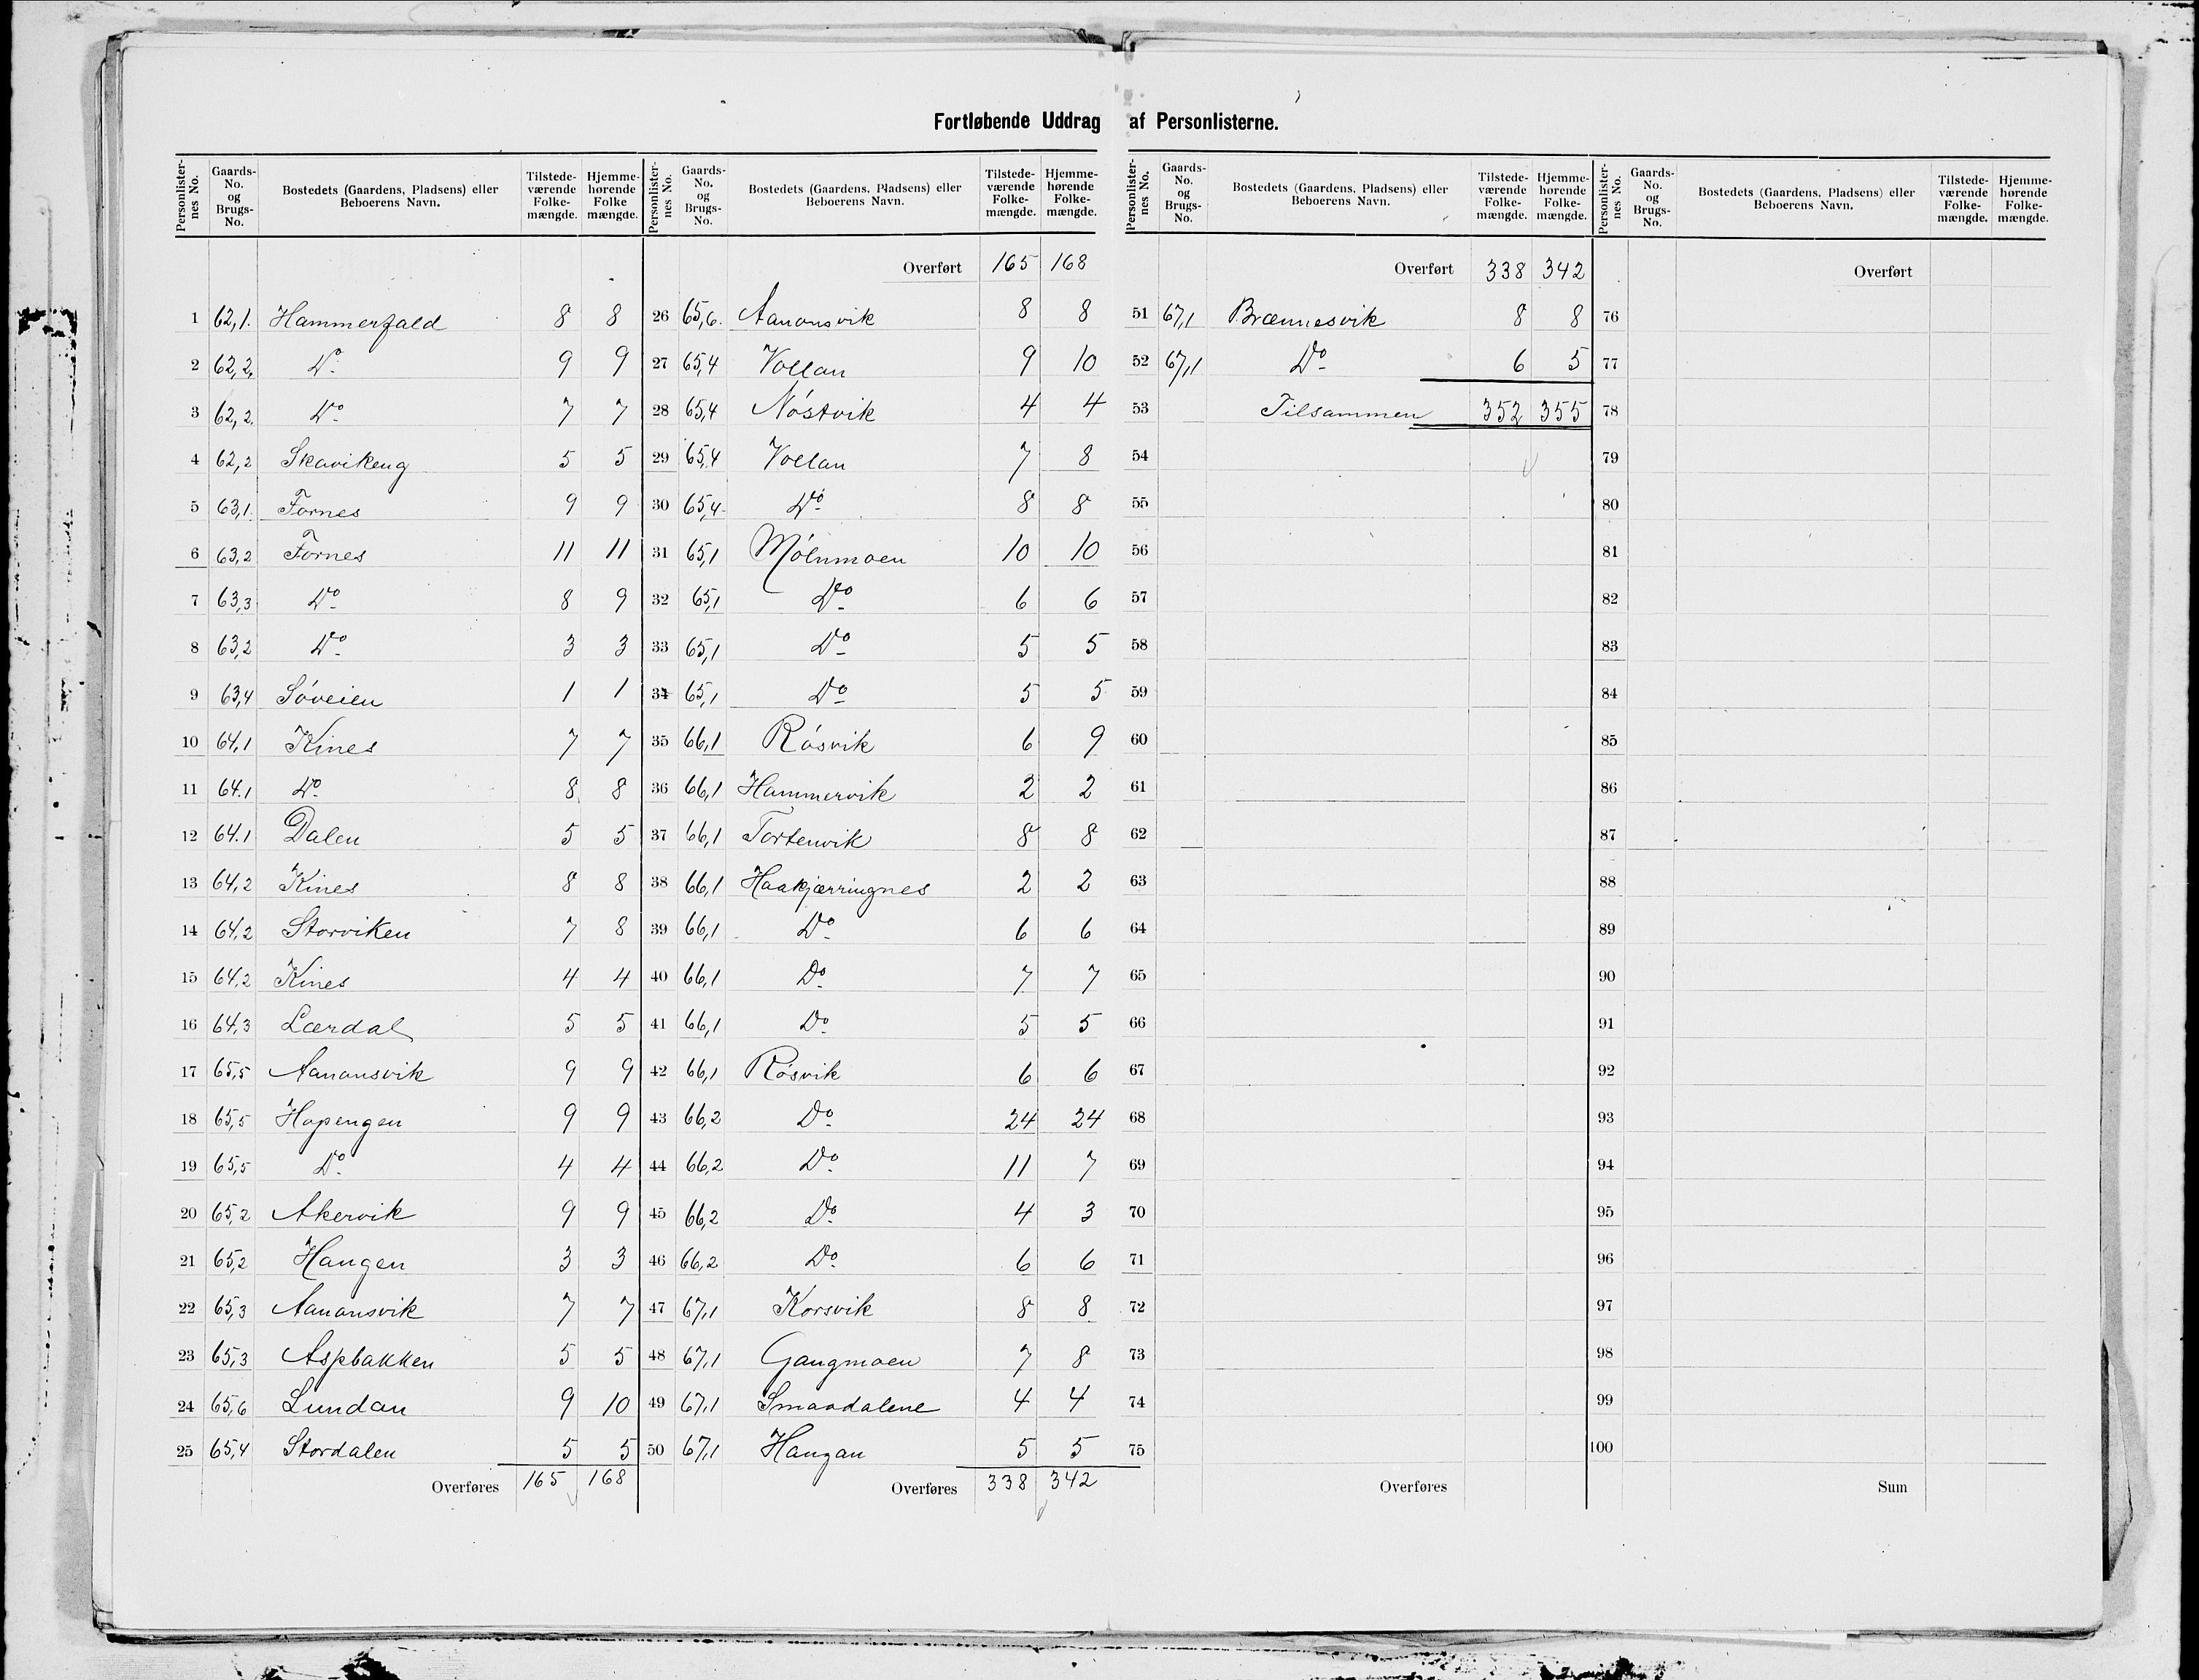 Fortløbende Uddrag af Personlisterne.
Personlisternes No. | Gaards-No. og Brugs-No. | Bostedets (Gaardens, Pladsens) eller Beboerens Navn. | Tilstedeværende Folkemængde. | Hjemmehørende Folkemængde.
1 62,1. Hammerfald 8 8
2 62,2. Do 9 9
3 62,2. Do 7 7
4 62,2 Skavikeng 5 5
5 63,1. Fornes 9 9
6 63,2 Fornes 11 11
7 63,3 Do 8 9
8 63,2 Do 3 3
9 63,4 Söveien 1 1
10 64,1 Kines 7 7
11 64.1 Do 8 8
12 64.1 Dalen 5 5
13 64,2 Kines 8 8
14 64,2 Storviken 7 8
15 64,2 Kines 4 4
16 64,3 Lærdal 5 5
17 65,5 Aanonsvik 9 9
18 65,5 Hopengen 9 9
19 65,5 Do 4 4
20 65,2 Akervik 9 9
21 65,2 Haugen 3 3
22 65,3 Aanonsvik 7 7
23 65,3 Aspbakken 5 5
24 65,6 Lundan 9 10
25 65,4 Stordalen 5 5
Overføres 165 168
Personlisternes No. | Gaards-No. og Brugs-No. | Bostedets (Gaardens, Pladsens) eller Beboerens Navn. | Tilstedeværende Folkemængde. | Hjemmehørende Folkemængde.
Overført 165 168
26 65,6. Aanonsvik 8 8
27 65,4 Vollan 9 10
28 65,4 Nöstvik 4 4
29 65,4 Vollan 7 8
30 65,4 Do 8 8
31 65,1 Mölnmoen 10 10
32 65,1 Do 6 6
33 65,1 Do 5 5
34 65,1 Do 5 5
35 66,1 Rösvik 6 9
36 66,1 Hammervik 2 2
37 66,1 Tortenvik 8 8
38 66,1 Haakjærringnes 2 2
39 66,1 Do 6 6
40 66,1 Do 7 7
41 66,1 Do 5 5
42 66,1 Rösvik 6 6
43 66,2 Do 24 24
44 66,2 Do 11 7
45 66,2 Do 4 3
46 66,2 Do 6 6
47 67,1 Korsvik 8 8
48 67,1 Gangmoen 7 8
49 67,1 Smaadalene 4 4
50 67,1 Haugan 5 5
Overføres 338 342
Personlisternes No. | Gaards-No. og Brugs-No. | Bostedets (Gaardens, Pladsens) eller Beboerens Navn. | Tilstedeværende Folkemængde. | Hjemmehørende Folkemængde.
Overført 338 342
51 67,1 Brænnesvik 8 8
52 67,1 Do 6 5
53 Tilsammen 352 355
54
55
56
57
58
59
60
61
62
63
64
65
66
67
68
69
70
71
72
73
74
75
Overføres
Personlisternes No. | Gaards-No. og Brugs-No. | Bostedets (Gaardens, Pladsens) eller Beboerens Navn. | Tilstedeværende Folkemængde. | Hjemmehørende Folkemængde.
Overført
76
77
78
79
80
81
82
83
84
85
86
87
88
89
90
91
92
93
94
95
96
97
98
99
100
Sum